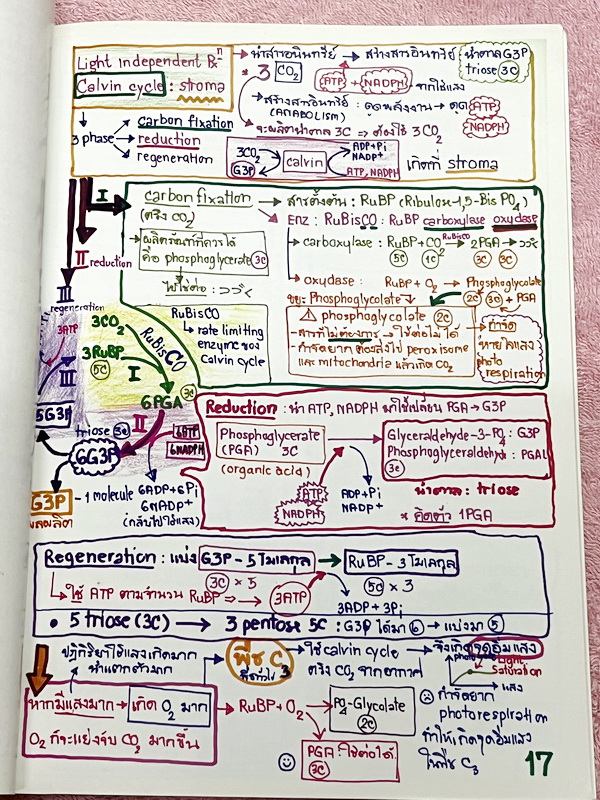 Light Independent Rxⁿ
Calvin cycle : stroma
นำสารอนินทรีย์ → สร้างสารอินทรีย์
3 CO₂
ATP + NADPH จากใช้แสง
น้ำตาล G3P
triose 3C
สร้างสารอินทรีย์ : ดูดพลังงาน → ดูด ATP
(ANABOLISM)
NADPH
จะผลิตน้ำตาล 3C ⇒ ต้องใช้ 3CO₂
3 phase
carbon fixation
reduction
regeneration
3CO₂
G3P
calvin
ADP+Pi
NADP⁺
ATP, NADPH
เกิดที่ stroma
I
carbon fixation
(ตรึง CO₂)
สารตั้งต้น : RuBP (Ribulox-1,5-Bis PO₄)
Enz : RuBisCO : RuBP carboxylase oxydase
ผลิตภัณฑ์ที่ควรได้
คือ phosphoglycerate 3C
carboxylase : RuBP + CO₂ RuBisCO → 2PGA →
5C 1C 3C 3C
oxydase : RuBP + O₂ → Phosphoglycolate
2C 3C + PGA
Phosphoglycolate
phosphoglycolate 2C
- สารที่ไม่ต้องการ → ใช้ต่อไม่ได้
- กำจัดยาก ต้องส่งไป peroxisome
และ mitochondria แล้วเกิด CO₂
กำจัด
หายใจแสง
photo
respiration
RuBisCO
↳ rate limiting
enzyme ของ
Calvin cycle
II
reduction
III
regeneration
3ATP
III
3CO₂
RuBisCO
3RuBP
5C
I
6PGA 3C
II
5G3P
triose 3C
6G3P
6ATP
6NADPH
G3P - 1 molecule
ผลผลิต
6ADP+6Pi
6NADP⁺
(กลับไปใช้แสง)
Reduction : นำ ATP, NADPH มาใช้เปลี่ยน PGA → G3P
Phosphoglycerate
(PGA) 3C
(organic acid)
Glyceraldehyde-3-PO₄ : G3P
Phosphoglyceraldehyde : PGAL
3C
ATP
NADPH
ADP+Pi
NADP⁺
น้ำตาล : triose
* คิดต่อ 1PGA
Regeneration : แบ่ง G3P - 5 โมเลกุล → RuBP - 3 โมเลกุล
3C × 5
5C × 3
↳ ใช้ ATP ตามจำนวน RuBP ⇒ 3ATP
3ADP + 3Pi
• 5 triose (3C) → 3 pentose 5C : G3P ได้มา 6 → แบ่งมา 5
ปฏิกิริยาใช้แสงเกิดมาก
น้ำแตกตัวมาก
พืช C₃
ใช้ calvin cycle
ตรึง CO₂ จากอากาศ
จึงเกิดจุดอิ่มแสง
Light
Saturation
แสง
หากมีแสงมาก → เกิด O₂ มาก
O₂ ก็จะแย่งจับ CO₂ มากขึ้น
RuBP + O₂
PO₄-Glycolate
2C
PGA : ใช้ต่อได้
3C
กำจัดยาก
photorespiration
ทำให้เกิดจุดอิ่มแสง
ในพืช C₃
17